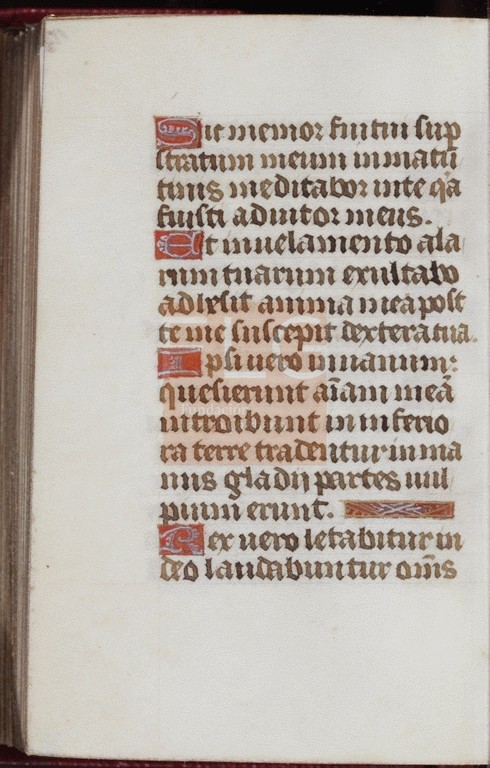 Sic memor fui tui sup
stratum meum in matu
tinis meditabor in te qͥa
fuisti adiutor meus.
Et in uelamento ala
rum tuarum exultabo
adhesit anima mea post
te me suscepit dextera tua.
Ipsi uero in uanum:
quesierunt aīam meā
introibunt in inferio
ra terre tradentur in ma
nus gladij partes uul
pium erunt.
Rex uero letabitur in
deo laudabuntur om̄s